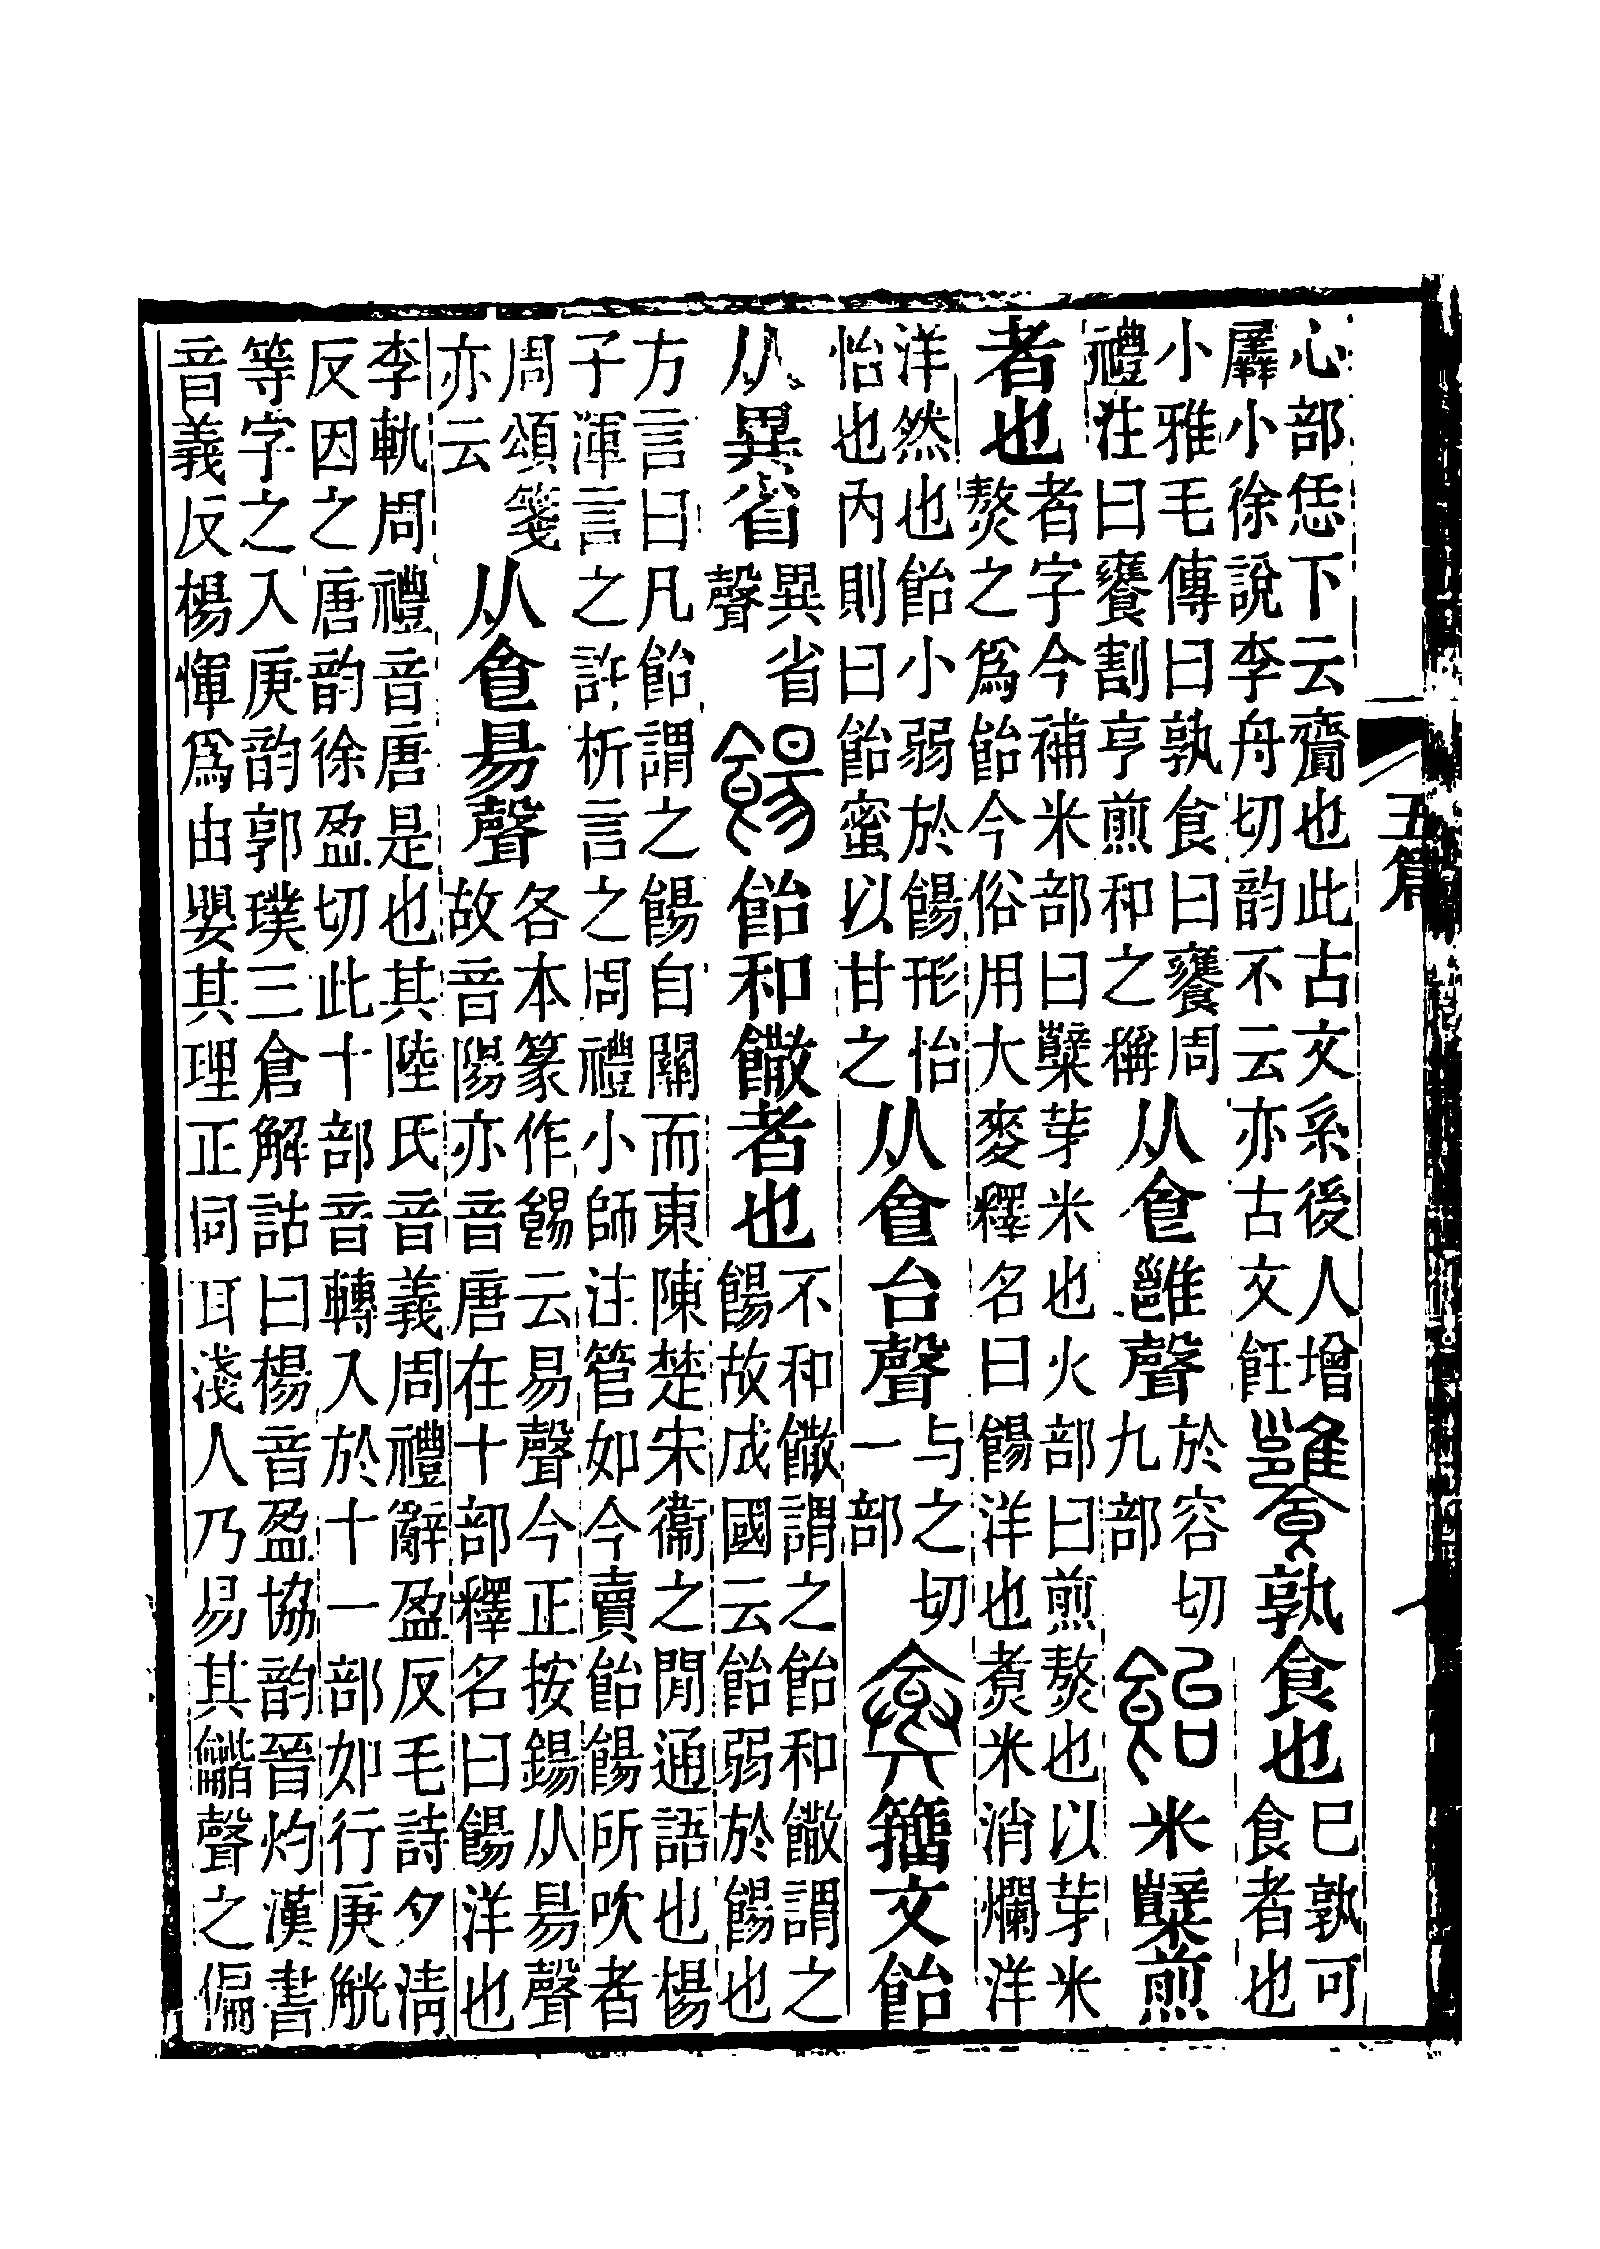 五篇
心部恁下云齎也此古文系後人增
羼小徐說李舟切韵不云亦古文飪
饔孰食也
巳孰可
食者也
小雅毛傳曰孰食曰饔周
禮注曰饔割亨煎和之稱
从食雝聲
於容切
九部
飴米櫱煎
者也
者字今補米部曰櫱芽米也火部曰煎熬也以芽米
熬之爲飴今俗用大麥釋名曰餳洋也煮米消爛洋
洋然也飴小弱於餳形怡
怡也內則曰飴蜜以甘之
从食台聲
与之切
一部
籒文飴
从異省
異省
聲
餳飴和饊者也
不和饊謂之飴和饊謂之
餳故成國云飴弱於餳也
方言曰凡飴謂之餳自關而東陳楚宋衞之閒通語也楊
子渾言之許析言之周禮小師注管如今賣飴餳所吹者
周頌箋
亦云
从食昜聲
各本篆作餳云易聲今正按鍚从昜聲
故音陽亦音唐在十部釋名曰餳洋也
李軌周禮音唐是也其陸氏音義周禮辭盈反毛詩夕清
反因之唐韵徐盈切此十部音轉入於十一部如行庚觥
等字之入庚韵郭璞三倉解詁曰楊音盈協韵晉灼漢書
音義反楊惲爲由嬰其理正同耳淺人乃易其諧聲之偏